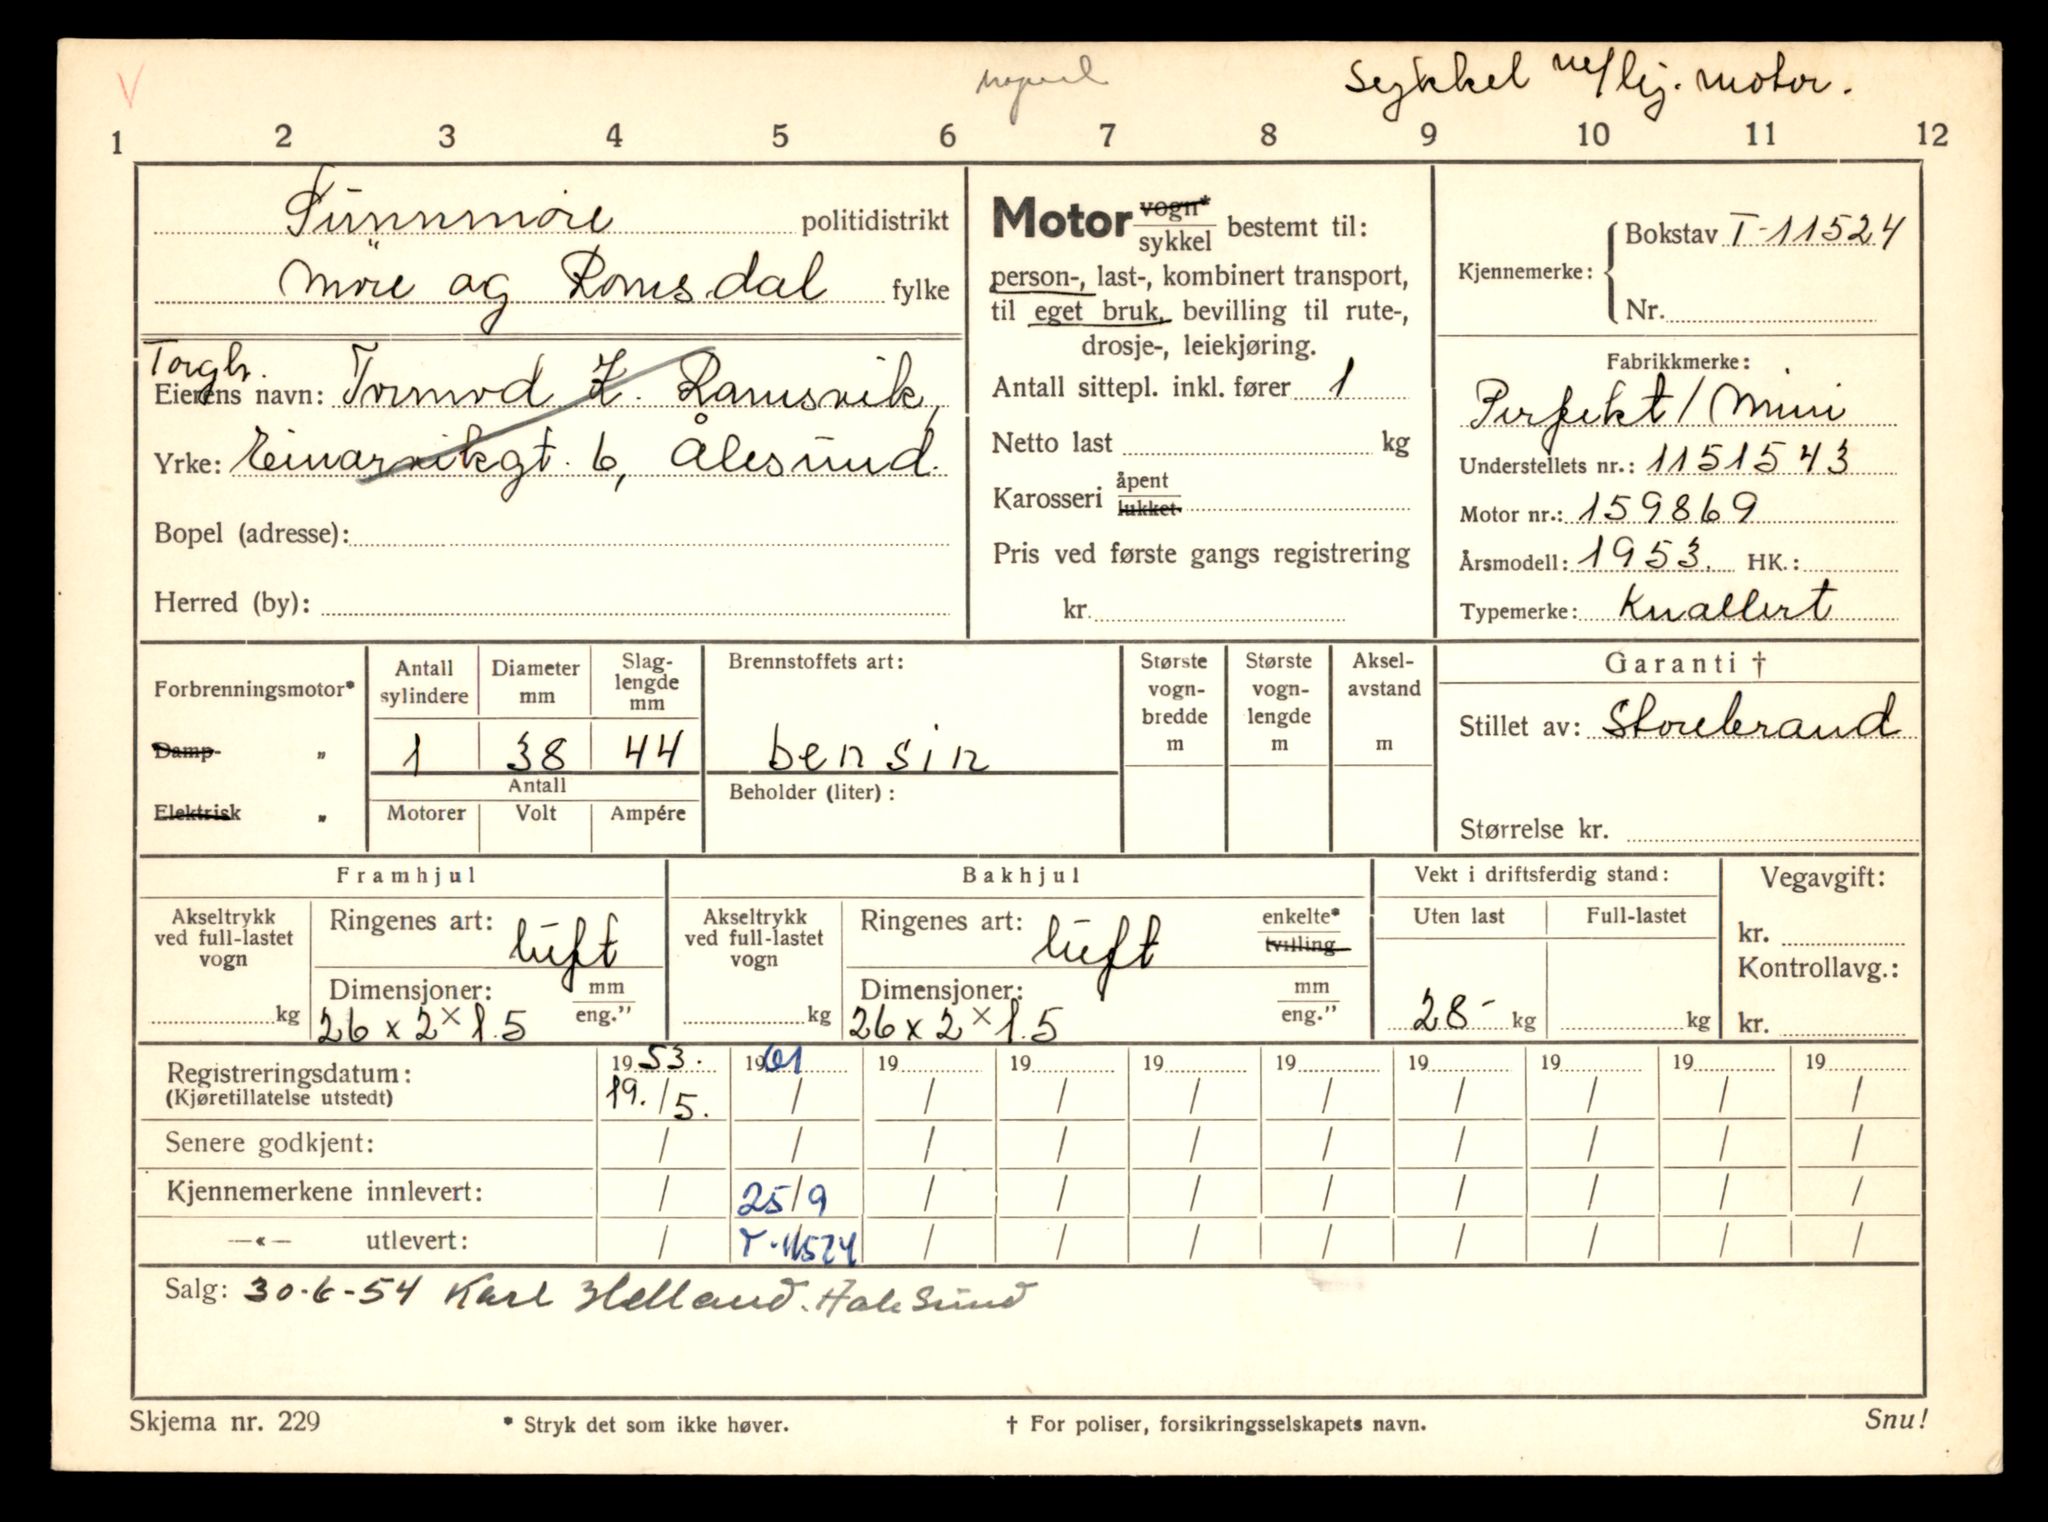 V
moped
Sykkel m/hj. motor.
1 2 3 4 5 6 7 8 9 10 11 12
Sunnmøre politidistrikt
Møre og Romsdal fylke
Torgb.
Eierens navn: Tormod Z. Ramsvik,
Yrke: Einarvikgt. 6, Ålesund.
Bopel (adresse):
Herred (by):
Motor vogn* sykkel bestemt til:
person-, last-, kombinert transport,
til eget bruk, bevilling til rute-,
drosje-, leiekjøring.
Antall sittepl. inkl. fører 1
Netto last kg
Karosseri åpent lukket
Pris ved første gangs registrering
kr.
Kjennemerke: Bokstav T-11524
Nr.
Fabrikkmerke:
Perfekt/Mini
Understellets nr.: 1151543
Motor nr.: 159869
Årsmodell: 1953. HK.:
Typemerke: Knallert
Forbrenningsmotor*
Damp- „
Elektrisk „
Antall sylindere
Diameter mm
Slag-lengde mm
1 38 44
Antall
Motorer Volt Ampére
Brennstoffets art:
bensin
Beholder (liter):
Største vogn-bredde m
Største vogn-lengde m
Aksel-avstand m
Garanti †
Stillet av: Storebrand
Størrelse kr.
Framhjul
Akseltrykk ved full-lastet vogn
kg
Ringenes art: luft
Dimensjoner: mm eng.”
26 x 2 x 1.5
Bakhjul
Akseltrykk ved full-lastet vogn
kg
Ringenes art: luft enkelte* tvilling
Dimensjoner: mm eng.”
26 x 2 x 1.5
Vekt i driftsferdig stand:
Uten last Full-lastet
28- kg kg
Vegavgift:
kr.
Kontrollavg.:
kr.
19 53. 19 61 19 19 19 19 19 19 19 19
Registreringsdatum: 19./5. / / / / / / / / /
(Kjøretillatelse utstedt)
Senere godkjent: / / / / / / / / / /
Kjennemerkene innlevert: / 25/9 / / / / / / / /
—«— utlevert: / T-11524 / / / / / / / /
Salg: 30-6-54 Karl Helland. Aalesund
Skjema nr. 229 * Stryk det som ikke høver. † For poliser, forsikringsselskapets navn. Snu!